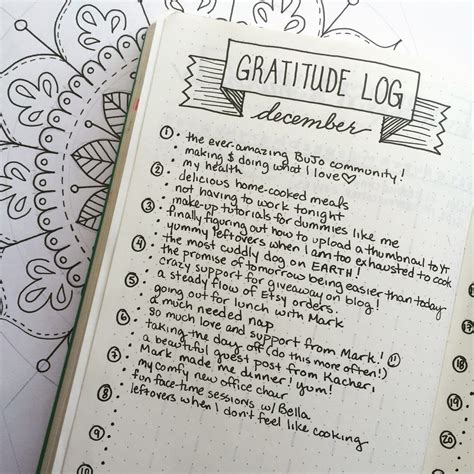 GRATITUDE LOG
december
1 • the ever-amazing BuJo community!
making $ doing what I love♡
my health
2 • delicious home-cooked meals
not having to work tonight
make-up tutorials for dummies like me
3 • finally figuring out how to upload a thumbnail to YT
yummy leftovers when I am too exhausted to cook
the most cuddly dog on EARTH!
4 • the promise of tomorrow being easier than today
crazy support for giveaway on blog!
a steady flow of Etsy orders.
5 • going out for lunch with Mark
a much needed nap
so much love and support from Mark!
6 • taking the day off (do this more often!)
a beautiful guest post from Kacheri
Mark made me dinner! yum!
7 • my comfy new office chair
fun face-time sessions w/ Bella
leftovers when I don't feel like cooking
8 •
9 •
10 •